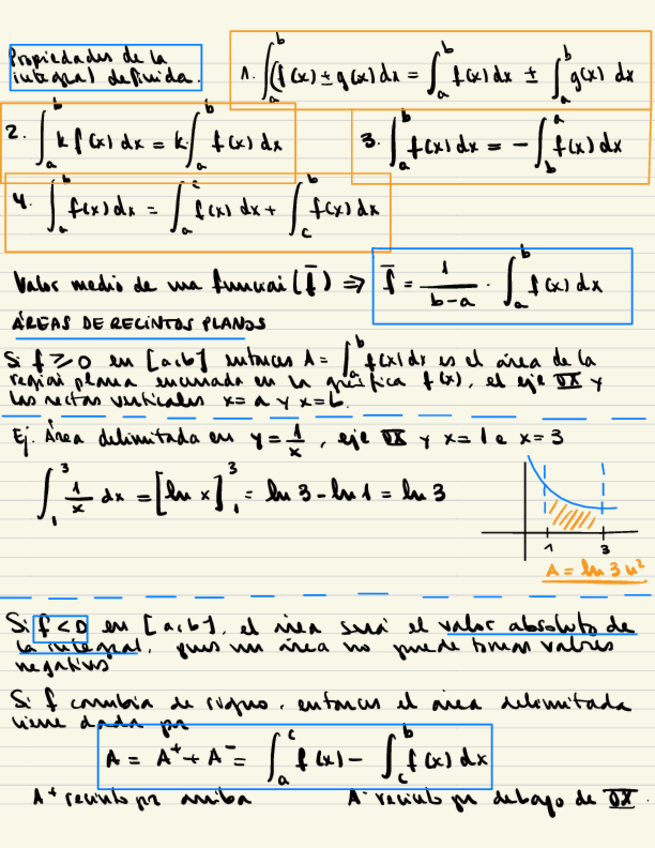 Propiedades de la
integral definida.
1. ∫_a^b (f(x) ± g(x) dx = ∫_a^b f(x) dx ± ∫_a^b g(x) dx
2. ∫_a^b k f(x) dx = k·∫_a^b f(x) dx
3. ∫_a^b f(x) dx = - ∫_b^a f(x) dx
4. ∫_a^b f(x) dx = ∫_a^c f(x) dx + ∫_c^b f(x) dx
Valor medio de una función (f̄) ⇒ f̄ = 1/(b-a) · ∫_a^b f(x) dx
ÁREAS DE RECINTOS PLANOS
Si f ≥ 0 en [a,b] entonces A = ∫_a^b f(x) dx es el área de la
región plana encerrada en la gráfica f(x), el eje OX y
las rectas verticales x = a y x = b.
Ej. Área delimitada en y = 1/x, eje OX y x = 1 e x = 3
∫_1^3 1/x dx = [ln x]_1^3 = ln 3 - ln 1 = ln 3
1 3
A = ln 3 u²
Si f < 0 en [a,b], el área será el valor absoluto de
la integral, pues un área no puede tomar valores
negativos
Si f cambia de signo, entonces el área delimitada
viene dada por
A = A⁺ + A⁻ = ∫_a^c f(x) - ∫_c^b f(x) dx
A⁺ recinto por arriba A⁻ recinto por debajo de OX.